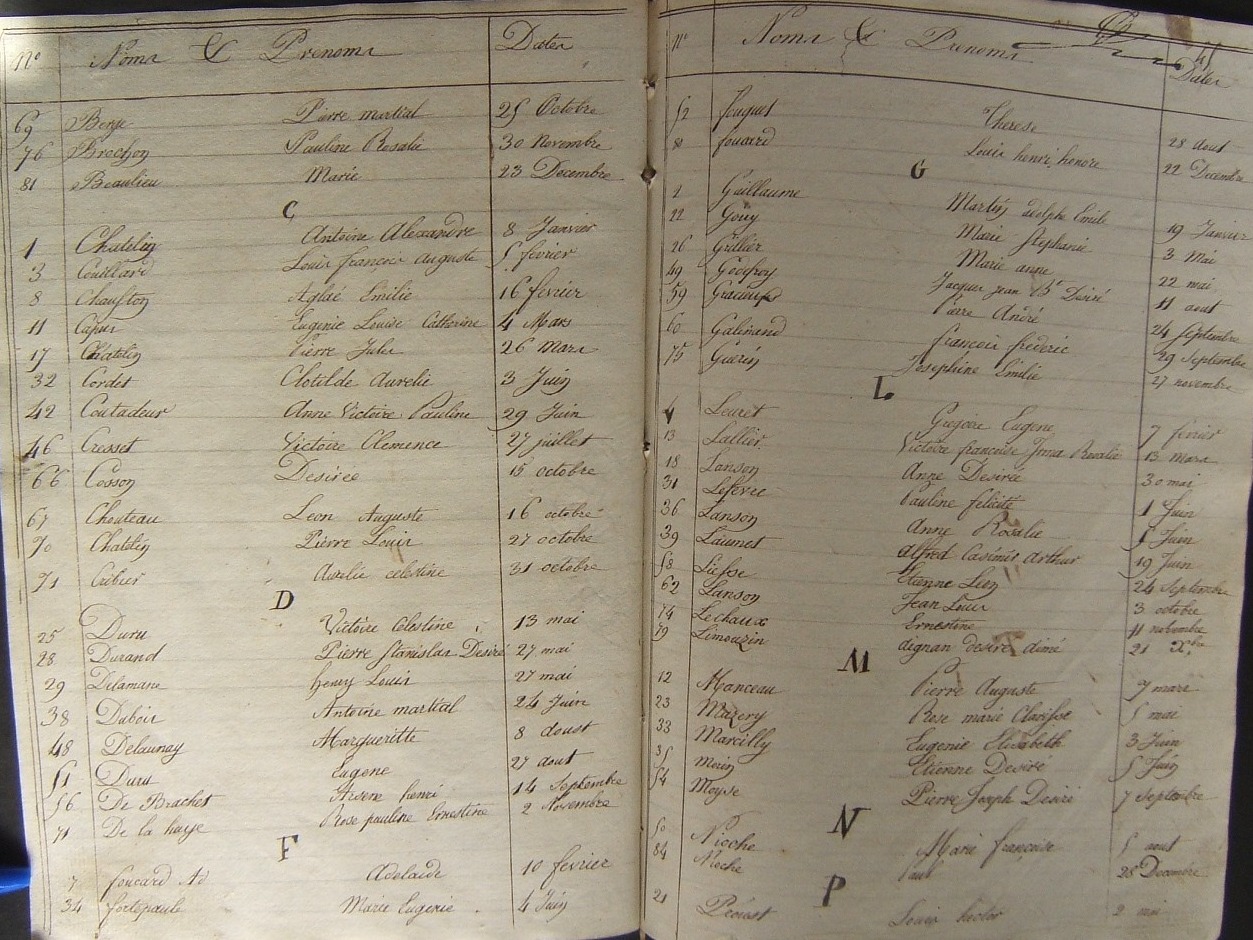 No Noms & Prenoms Dates
69 Berge Pierre martial 25 Octobre
76 Brechon Pauline Rosalie 30 Novembre
81 Beaulieu Marie 23 Decembre
C
1 Chatelin Antoine Alexandre 8 Janvier
3 Couillard Louis françois Auguste 5 fevrier
8 Aglaé Emilie 16 fevrier
11 Eugenie Louise Catherine 4 Mars
17 Chatelin Pierre Jules 26 Mars
32 Cordet Clotilde Aurelie 3 Juin
42 Coutadeur Anne Victoire Pauline 29 Juin
46 Cresset Victoire Clemence 27 juillet
66 Cosson Desirée 15 octobre
67 Chouteau Leon Auguste 16 octobre
70 Chatelin Pierre Louis 27 octobre
71 Cribier Aurelie celestine 31 octobre
D
25 Duru Victoire Celestine 13 mai
28 Durand Pierre Stanislas Desiré 27 mai
29 Delamare henry Louis 27 mai
38 Dubois Antoine martial 24 Juin
48 Delaunay Margueritte 8 aoust
51 Duru Eugene 27 aout
56 De Brachet Arsene henri 14 Septembre
71 De la haye Rose pauline Ernestine 2 Novembre
F
7 foucard Ad Adelaide 10 fevrier
34 fortepaule Marie Eugenie 4 Juin
No Noms & Prenoms Dates
52 fouquet Therese 28 aout
80 fouard Louis henri honore 22 Decembre
G
2 Guillaume Martin adolphe Emile 19 Janvier
22 Gouy Marie Stephanie 3 Mai
26 Grillier Marie anne 22 mai
49 Godefroy Jacques jean Bte Desiré 11 aout
59 Pierre André 24 Septembre
60 Galinand francois frederic 29 Septembre
75 Guerin Josephine Emilie 27 novembre
L
Leuret Gregoire Eugene 7 février
13 Lallier Victoire francoise Rosalie 13 mars
18 Lanson Anne Desirée 30 mai
31 Lefevre Pauline felicité 1 Juin
36 Lanson Anne Rosalie Juin
39 Laumet Alfred Casimir Arthur 19 Juin
58 Liesse Etienne Leon 24 Septembre
62 Lanson Jean Louis 3 octobre
74 Lechaux Ernestine 11 novembre
79 Limouzin aignan desiré aimé 21 Xbre
M
12 Manceau Pierre Auguste 9 mars
23 Mazery Rose marie Clarisse 5 mai
33 Marcilly Eugenie Elisabeth 3 Juin
35 Morin Etienne Desiré 5 Juin
54 Moyse Pierre Joseph Desiré 7 Septembre
N
50 Nioche Marie françoise 5 aout
84 Noche Paul 28 Decembre
P
21 Prévost Louis hector 2 mai